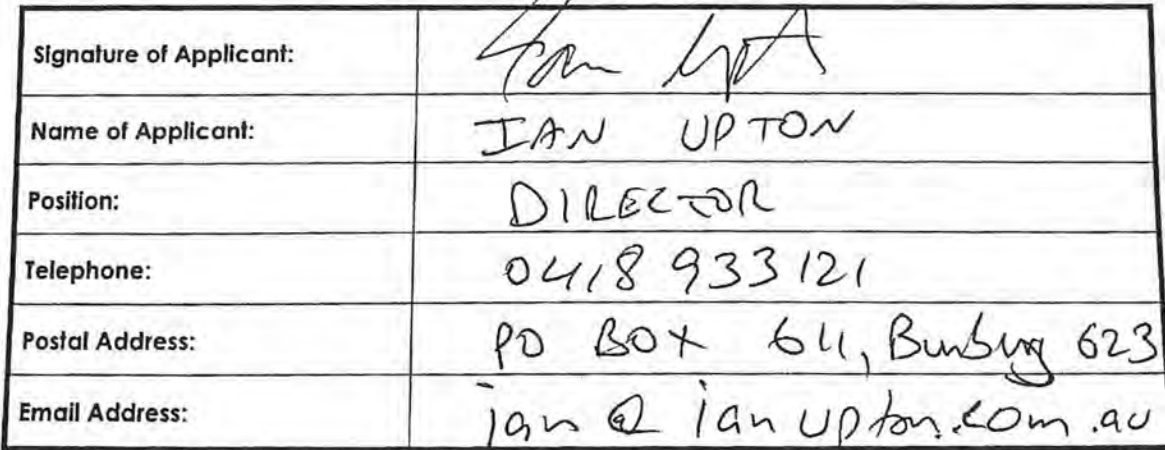 Signature of Applicant: Ian Upt
Name of Applicant: IAN UPTON
Position: DIRECTOR
Telephone: 0418 933 121
Postal Address: PO BOX 611, Bunbury 623
Email Address: ian@ianupton.com.au